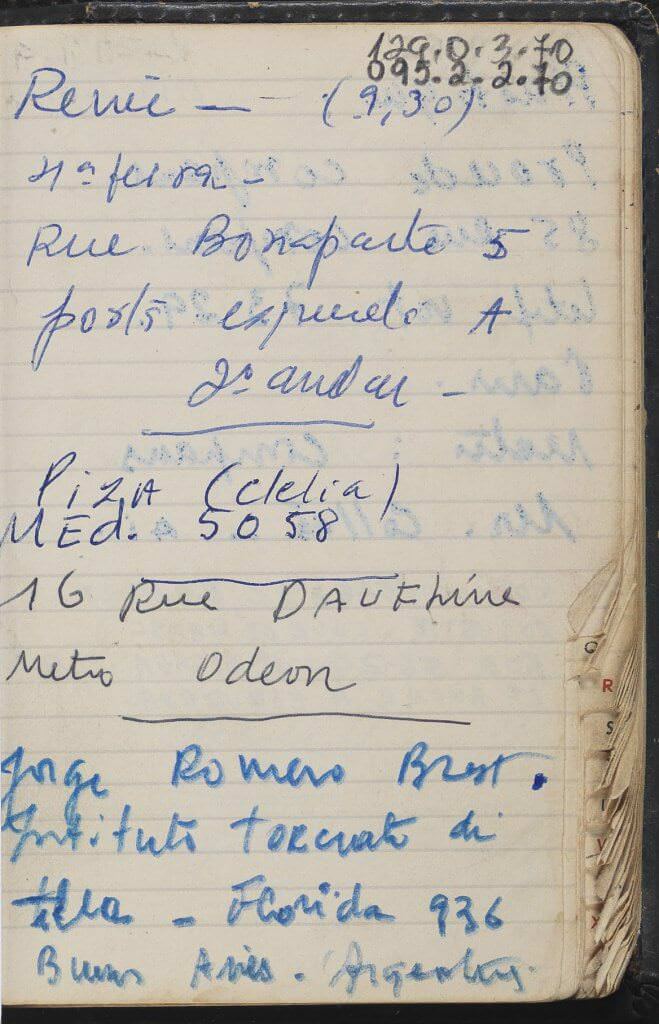 129.0.3.70
095.2.2.70
Renée — (9,30)
4ª feira -
Rue Bonaparte 5
porta esquerda A
2º andar -
Piza (Clelia)
MED. 5058
16 Rue DAUPhine
Metro Odeon
Jorge Romero Brest.
Instituto torcuato di
tella - Florida 936
Buenos Aires. Argentina.
Q
R
S
V
X